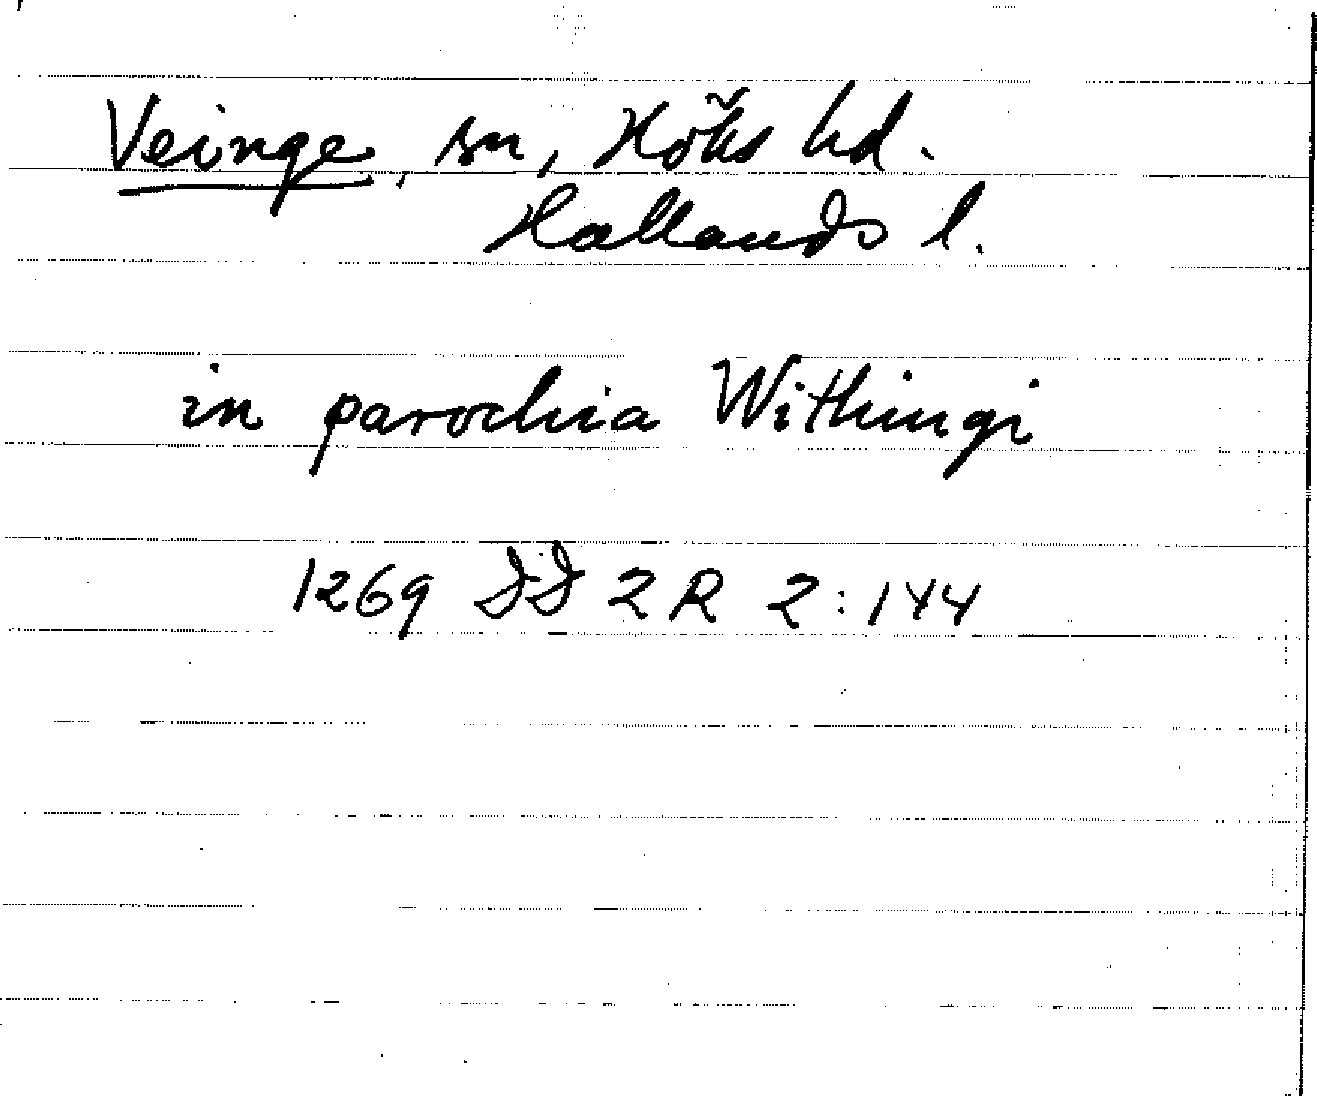 Veinge, sn, Höks hd.
Hallands l.
in parochia Withingi
1269 DD 2 R 2:144